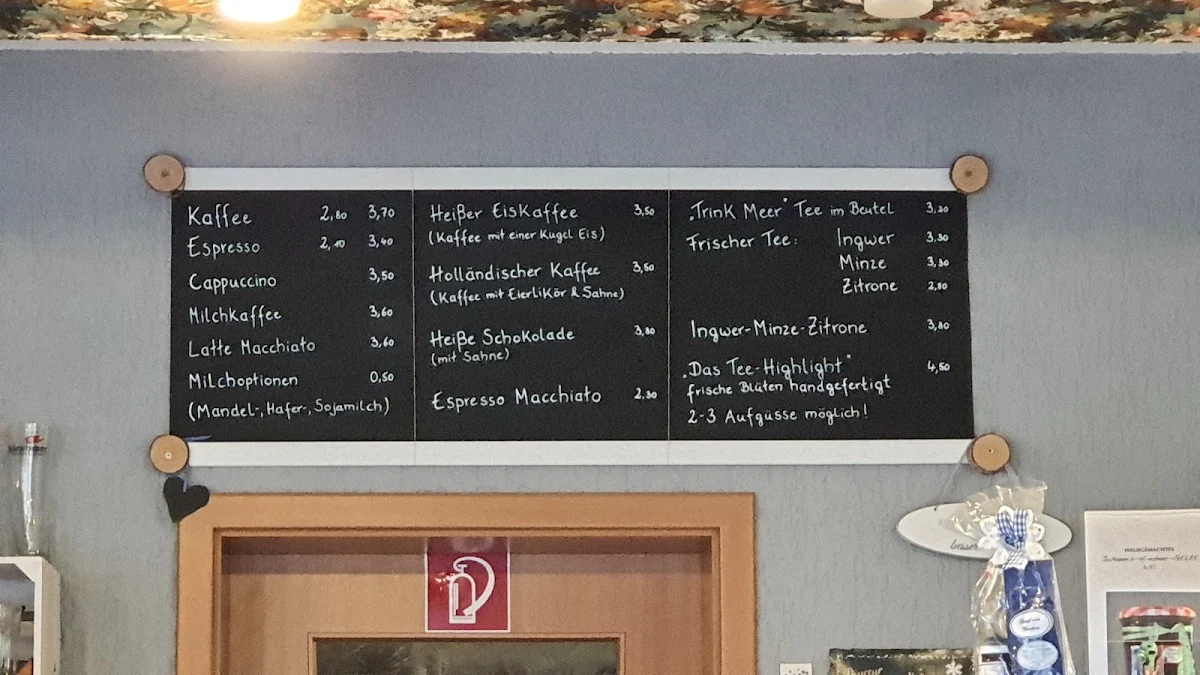 Kaffee 2,80 3,70
Espresso 2,10 3,40
Cappuccino 3,50
Milchkaffee 3,60
Latte Macchiato 3,60
Milchoptionen 0,50
(Mandel-, Hafer-, Sojamilch)
Heißer Eiskaffee 3,50
(Kaffee mit einer Kugel Eis)
Holländischer Kaffee 3,50
(Kaffee mit Eierlikör & Sahne)
Heiße Schokolade 3,80
(mit Sahne)
Espresso Macchiato 2,30
„Trink Meer" Tee im Beutel 3,20
Frischer Tee: Ingwer 3,30
Minze 3,30
Zitrone 2,80
Ingwer-Minze-Zitrone 3,80
„Das Tee-Highlight" 4,50
frische Blüten handgefertigt
2-3 Aufgüsse möglich!
HAUSGEMACHTES